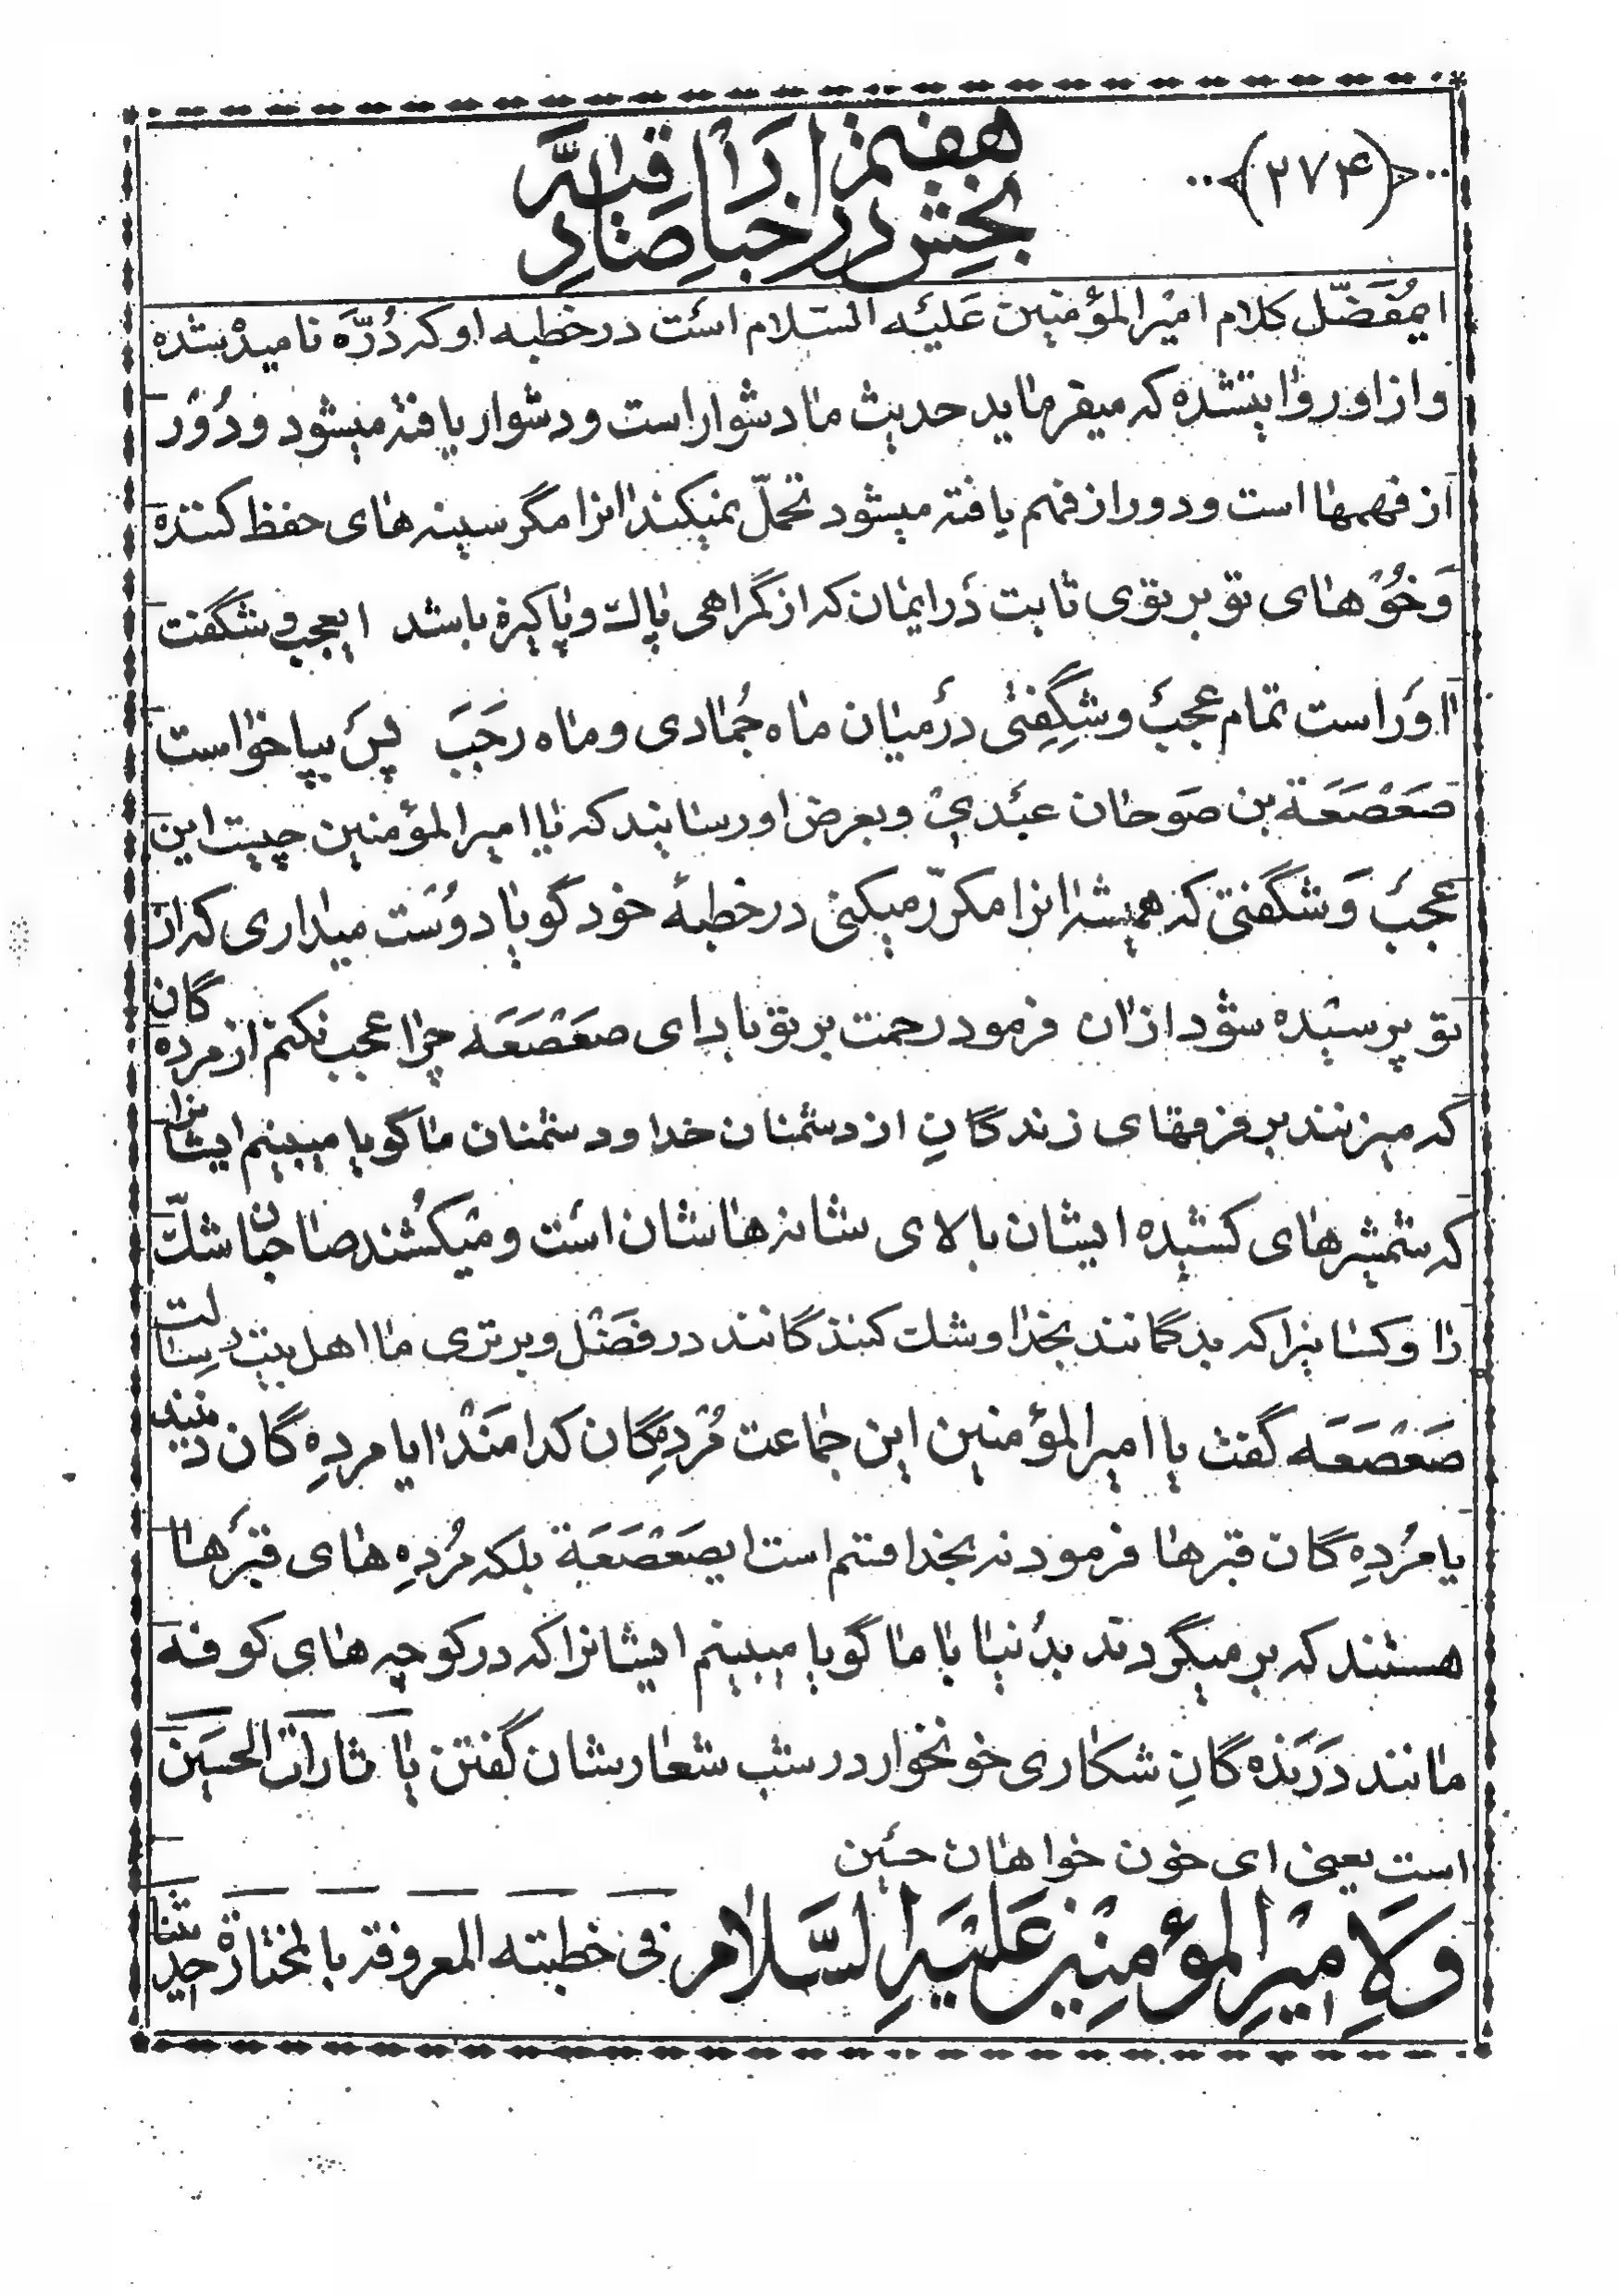 ﴿۲۷۴﴾
بخش هفتم در اخبار صادقیه
ایمُفَضّل کلام امیرالمؤمنین عَلیَه السّلام اسَت در خطبه او که دُرَّه نامیدْه شده
و از او روایتشده که میفرماید حدیث ما دشوار است و دشوار یافته میشود و دُوْر
از فهمها است و دور از فهم یافته میشود تحمّل نمیکند انرا مگر سینه های حفظ کننده
وَ خُوْهای تو بر توی ثابت دَر ایمان که از گمراهی پاك و پاکیزه باشد ایعجب و شگفت
اوَ راست تمام عجبَ و شِگِفِتی درَ میان ماه جُمادی و ماه رَجَبَ پسَ بپا خواست
صَعَصَعَة بن صَوحان عبَدیْ و بعرض او رسانید که یا امیرالمؤمنین چیست این
عجبَ وَ شگفتی که همیشه انرا مکرّر میکنی در خطبهٔ خود گویا دوُسَت میداری که از
تو پرسیْده شود از ان فرمود رحمت بر تو باد ای صعَصَعَه چرا عجب نکنم از مرده گان
که میزنند بر فرقهای زنده گانِ از دشمنان خدا و دشمنان ما گویا میبینم ایشانرا
که شمشیرهای کشیده ایشان بالای شانه هاشان اسَت و میکشُند صاحبان شكّ
را و کسانیرا که بدگمانند بخدا و شك کننده گانند در فضْل و برتری ما اهل بیت رسالت
صَعَصَعَه گفت یا امیرالمؤمنین این جماعت مُرْدِه گان کدامنَدْ ایا مرده گان دنیند
یا مرُدِه گان قبرها فرمود نه بخدا قسم است ایصَعَصَعَة بلکه مُردِه های قبَرها
هستند که بر میگردند بدُنیا با ما گویا میبینم ایشانرا که در کوچه های کوفه
مانند دَرَنَده گانِ شکاری خونخوار در شب شعارشان گفتن یا ثارات الحسَین
است یعنی ای خون خواهان حسَین
وَلاِمیْرِالمؤمِنیْنَ عَلیَهِ السَّلام فی خطبته المعروفة بالمختارة حدیثنا